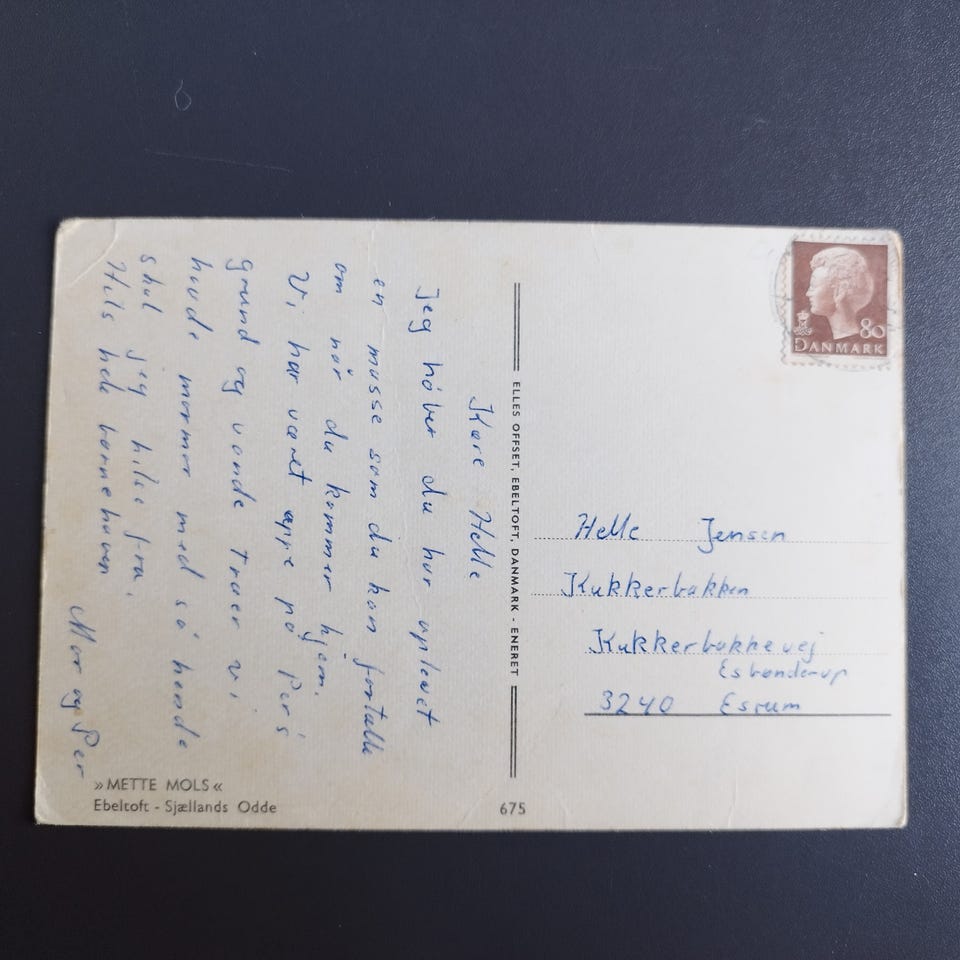 Kære Helle
Jeg håber du har oplevet
en masse som du kan fortælle
om når du kommer hjem.
Vi har været oppe på Per's
grund og vande træer vi
havde mormor med så hende
skal jeg hilse fra.
Hils hele børnehaven
Mor og Per
»METTE MOLS«
Ebeltoft - Sjællands Odde
ELLES OFFSET, EBELTOFT, DANMARK - ENERET
675
80
DANMARK
Helle Jensen
Kukkerbakken
Kukkerbakkevej
Esbønderup
3240 Esrum